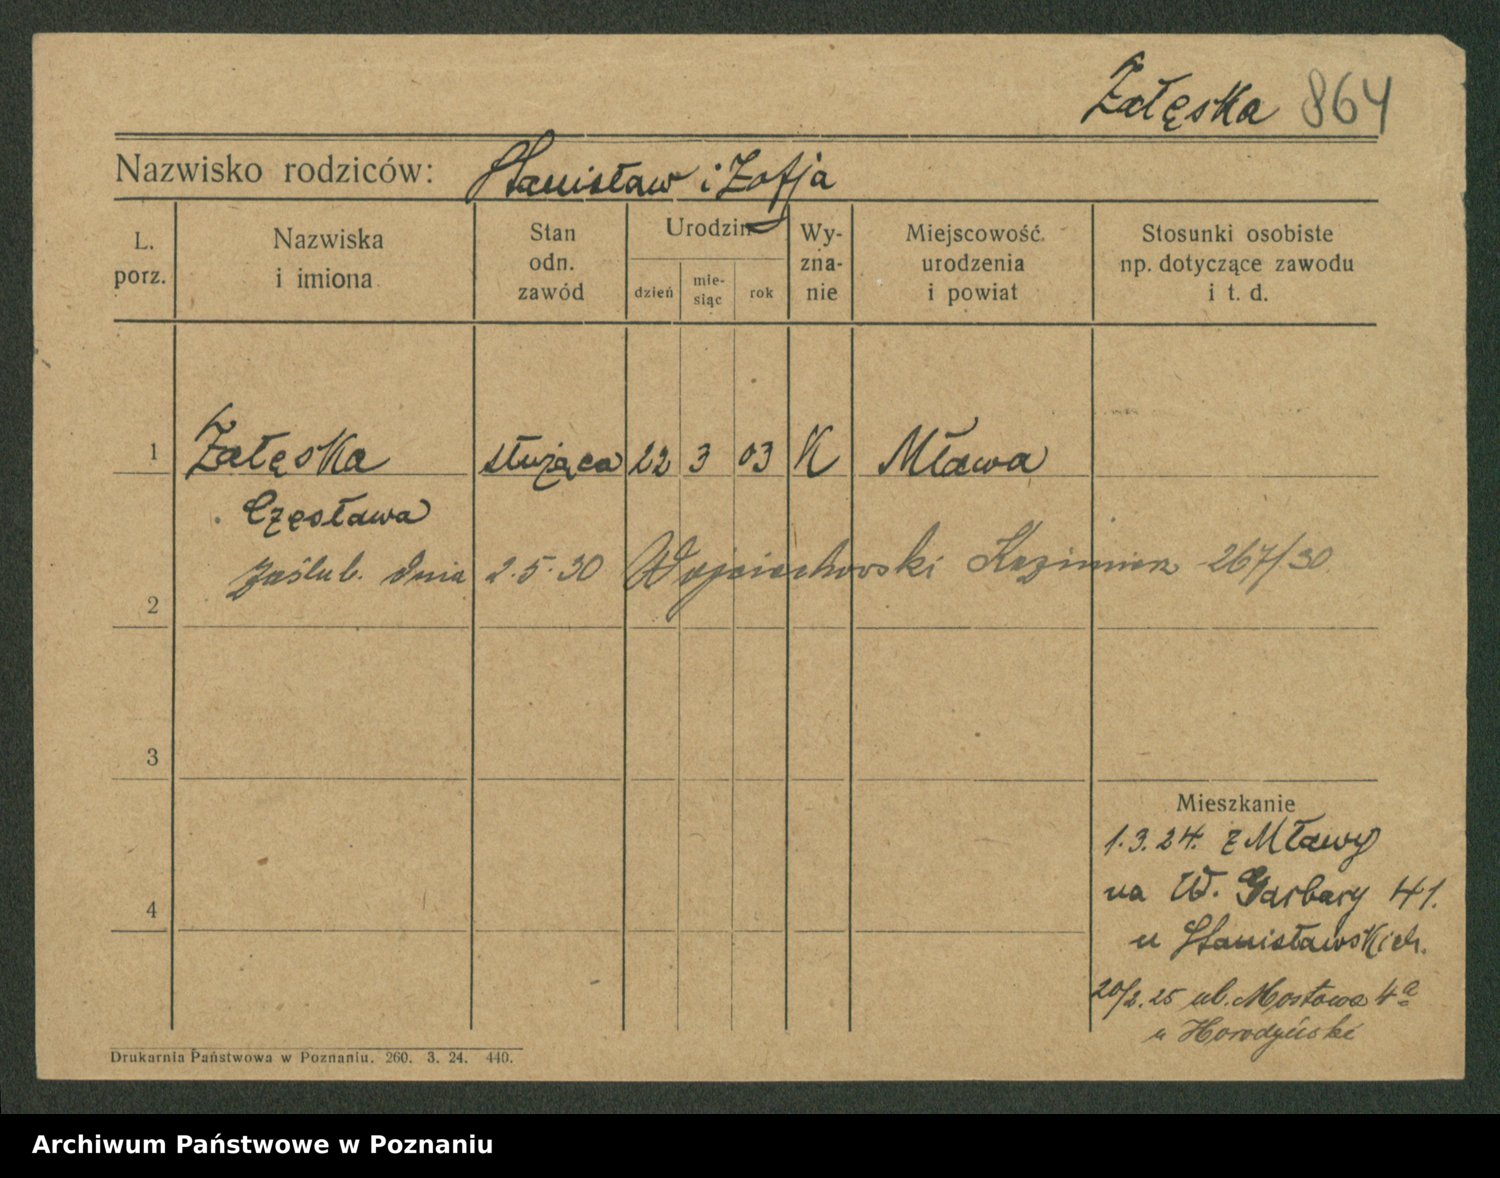 Załęska 864
Nazwisko rodziców: Stanisław i Zofja
L. porz.
Nazwiska i imiona
Stan odn. zawód
Urodzin
dzień
mie- siąc
rok
Wy- zna- nie
Miejscowość urodzenia i powiat
Stosunki osobiste np. dotyczące zawodu i t. d.
1 Załęska służąca 22 3 03 K Mława
Częsława
zaślub. dnia 2.5.30 Wojciechowski Kazimierz 267/30
2
3
Mieszkanie
1.3.24. z Mławy
na W. Garbary 41.
4
u Stanisławskich.
20/2.25 ul. Mostowa 4a
u Horodyński
Drukarnia Państwowa w Poznaniu. 260. 3. 24. 440.
Archiwum Państwowe w Poznaniu